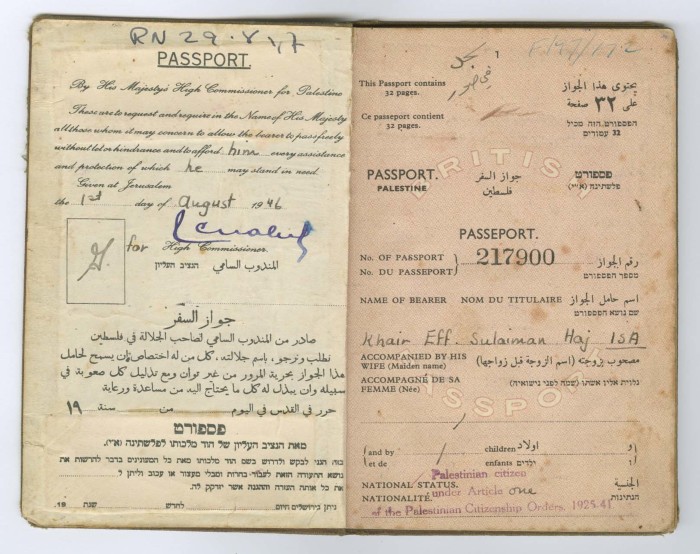 RN 29.8.47
PASSPORT.
By His Majesty's High Commissioner for Palestine
These are to request and require in the Name of His Majesty
all those whom it may concern to allow the bearer to pass freely
without let or hindrance and to afford him every assistance
and protection of which he may stand in need.
Given at Jerusalem
the 1st day of August 1946
for High Commissioner.
المندوب السامي הנציב העליון
جواز السفر
صادر من المندوب السامي لصاحب الجلالة في فلسطين
نطلب ونرجو، باسم جلالته، كل من له اختصاص بأن يسمح لحامل
هذا الجواز بحرية المرور من غير توان ومع تذليل كل صعوبة في
سبيله وان يبذل له كل ما يحتاج اليه من مساعدة ورعاية
حرر في القدس في اليوم من سنة ١٩
פספורט
מאת הנציב העליון של הוד מלכותו לפלשתינה (א״י).
הנני לבקש ולדרוש בשם הוד מלכותו מאת כל המעונינים בדבר להרשות את
נושא התעודה הזאת לעבור בחרות ומבלי מעצור או עכוב וליתן לו
את כל אותה העזרה וההגנה אשר יזדקק לה.
ניתן בירושלים היום לחדש שנת 19
1
This Passport contains
32 pages.
Ce passeport contient
32 pages.
يحتوي هذا الجواز
على ٣٢ صفحة
הפספורט הזה מכיל
32 עמודים
BRITISH
PASSPORT.
PALESTINE
جواز السفر
فلسطين
פספורט
פלשתינה (א״י)
PASSEPORT.
No. OF PASSPORT
No. DU PASSEPORT
217900
رقم الجواز
מספר הפספורט
NAME OF BEARER NOM DU TITULAIRE اسم حامل الجواز
שם נושא הפספורט
Khair Eff. Sulaiman Haj ISA
ACCOMPANIED BY HIS
WIFE (Maiden name)
مصحوب بزوجته (اسم الزوجة قبل زواجها)
ACCOMPAGNÉ DE SA
FEMME (Née)
נלוית אליו אשתו (שמה לפני נישואיה)
PASSPORT
and by children و اولاد
et de enfants ילדים ו
NATIONAL STATUS.
NATIONALITÉ.
الجنسية
הנתינות.
Palestinian citizen
under Article one
of the Palestinian Citizenship Orders, 1925-41